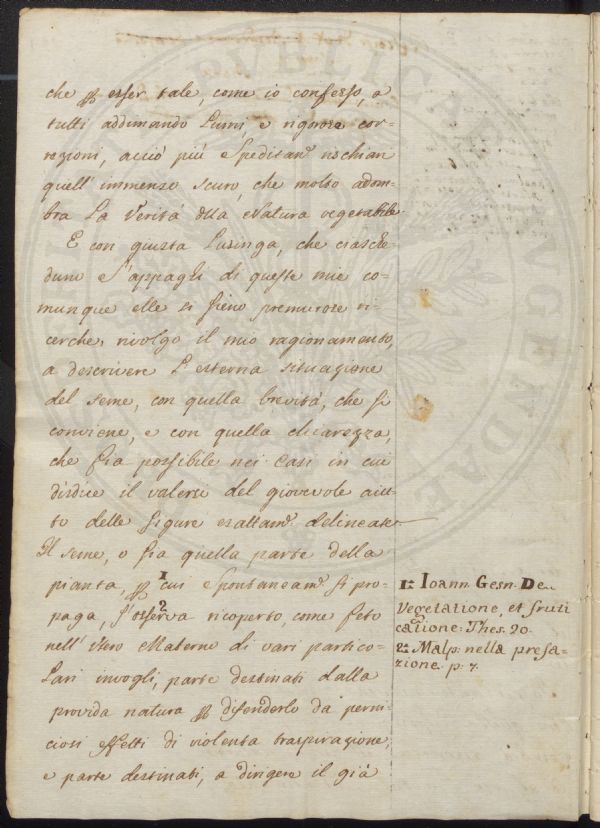 che per esser tale, come io confesso, a
tutti addimando Lumi, e rigorose cor-
rezioni, acciò più speditam.e rischiari
quell' immenso scuro, che molto adom-
bra La Verità della Natura vegetabile
E con giusta Lusinga, che ciasche
duno s'appaghi di queste mie co-
munque elle si sieno premurose ri-
cerche, rivolgo il mio ragionamento,
a descrivere L'esterna situazione
del seme, con quella brevità, che si
conviene, e con quella chiarezza,
che sia possibile nei casi in cui
disdice il valersi del giovevole aiu-
to delle figure esattam.e delineate
Il seme, o sia quella parte della
pianta, per 1 cui spontaneam.e si pro-
paga, s'osserva 2 ricoperto, come feto
nell' Utero Materno di vari partico-
Lari invogli, parte destinati dalla
provida natura per difenderlo da perni
ciosi effetti di violenta traspirazione,
e parte destinati, a dirigere il già
1: Ioann. Gesn. De
Vegetatione, et fruti
catione: Thes. 20.
2: Malp: nella prefa-
zione. p. 7.